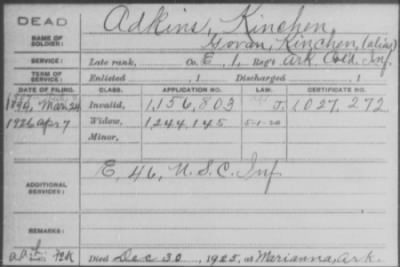 DEAD
NAME OF SOLDIER: Adkins, Kinchen,
Govan, Kinchen, (alias)
SERVICE: Late rank, Co. E, 1, Reg't Ark Cold. Inf.
TERM OF SERVICE: Enlisted , 1 Discharged , 1
DATE OF FILING. CLASS. APPLICATION NO. LAW. CERTIFICATE NO.
Mar 24 Invalid, 1,156,803 J. 1,027,272
1926 Apr 7 Widow, 1,244,145 5-1-20
Minor,
ADDITIONAL SERVICES: E, 46, U.S.C. Inf
REMARKS:
Died Dec 30, 1925, at Marianna, Ark.